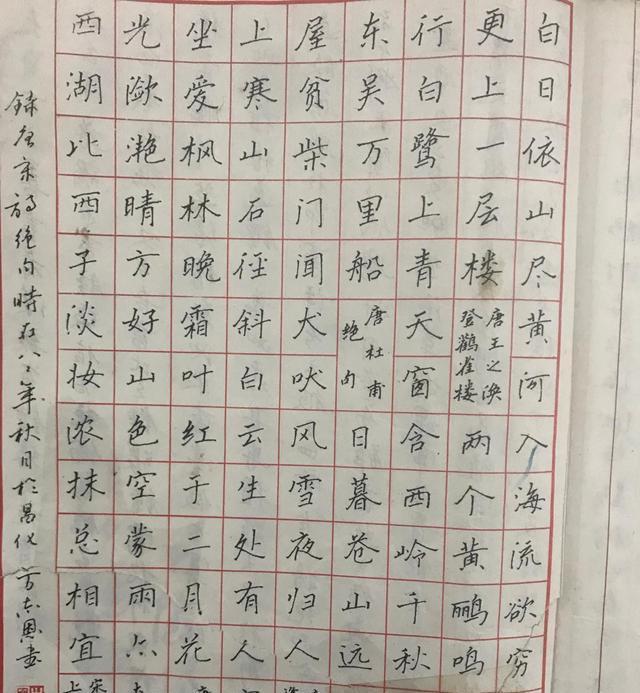 白日依山尽黄河入海流欲穷
更上一层楼
唐王之涣
登鹳雀楼
两个黄鹂鸣
行白鹭上青天窗含西岭千秋
东吴万里船
唐杜甫
绝句
日暮苍山远
屋贫柴门闻犬吠风雪夜归人
上寒山石径斜白云生处有人
坐爱枫林晚霜叶红于二月花
光潋滟晴方好山色空蒙雨亦
西湖比西子淡妆浓抹总相宜
宋
上
唐宋诗絕句時在八二年秋月於昌化